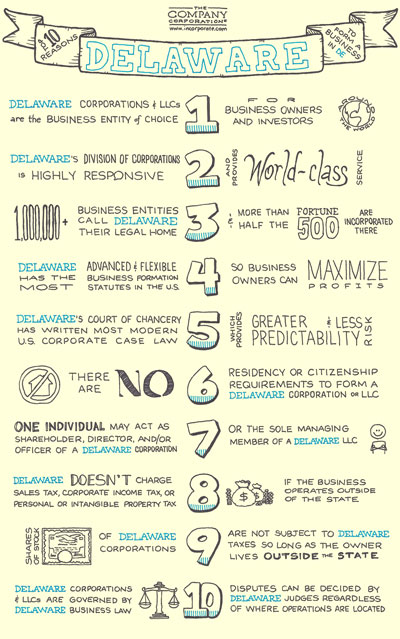 THE
COMPANY
CORPORATION®
www.incorporate.com
TOP 10
REASONS
DELAWARE
TO
FORM A
BUSINESS
IN DE
DELAWARE CORPORATIONS & LLCs
are the BUSINESS ENTITY of CHOICE
1
FOR
BUSINESS OWNERS
AND INVESTORS
AROUND
THE WORLD
DELAWARE'S DIVISION OF CORPORATIONS
is HIGHLY RESPONSIVE
2
AND
PROVIDES
World-class
SERVICE
1,000,000+
BUSINESS ENTITIES
CALL DELAWARE
THEIR LEGAL HOME
3
& MORE THAN
HALF THE
FORTUNE
500
ARE
INCORPORATED
THERE
DELAWARE
HAS THE
MOST
ADVANCED & FLEXIBLE
BUSINESS FORMATION
STATUTES IN THE U.S.
4
SO BUSINESS
OWNERS CAN
MAXIMIZE
PROFITS
DELAWARE'S COURT OF CHANCERY
HAS WRITTEN MOST MODERN
U.S. CORPORATE CASE LAW
5
WHICH
PROVIDES
GREATER & LESS
PREDICTABILITY
RISK
THERE
ARE
NO
6
RESIDENCY OR CITIZENSHIP
REQUIREMENTS TO FORM A
DELAWARE CORPORATION or LLC
ONE INDIVIDUAL MAY ACT AS
SHAREHOLDER, DIRECTOR, AND/OR
OFFICER OF A DELAWARE CORPORATION
7
OR THE SOLE MANAGING
MEMBER OF A DELAWARE LLC
DELAWARE DOESN'T CHARGE
SALES TAX, CORPORATE INCOME TAX, OR
PERSONAL OR INTANGIBLE PROPERTY TAX
8
$ $
IF THE BUSINESS
OPERATES OUTSIDE
OF THE STATE
SHARES
OF STOCK
OF DELAWARE
CORPORATIONS
9
ARE NOT SUBJECT TO DELAWARE
TAXES SO LONG AS THE OWNER
LIVES OUTSIDE THE STATE
DELAWARE CORPORATIONS
& LLCs ARE GOVERNED BY
DELAWARE BUSINESS LAW
10
DISPUTES CAN BE DECIDED BY
DELAWARE JUDGES REGARDLESS
OF WHERE OPERATIONS ARE LOCATED